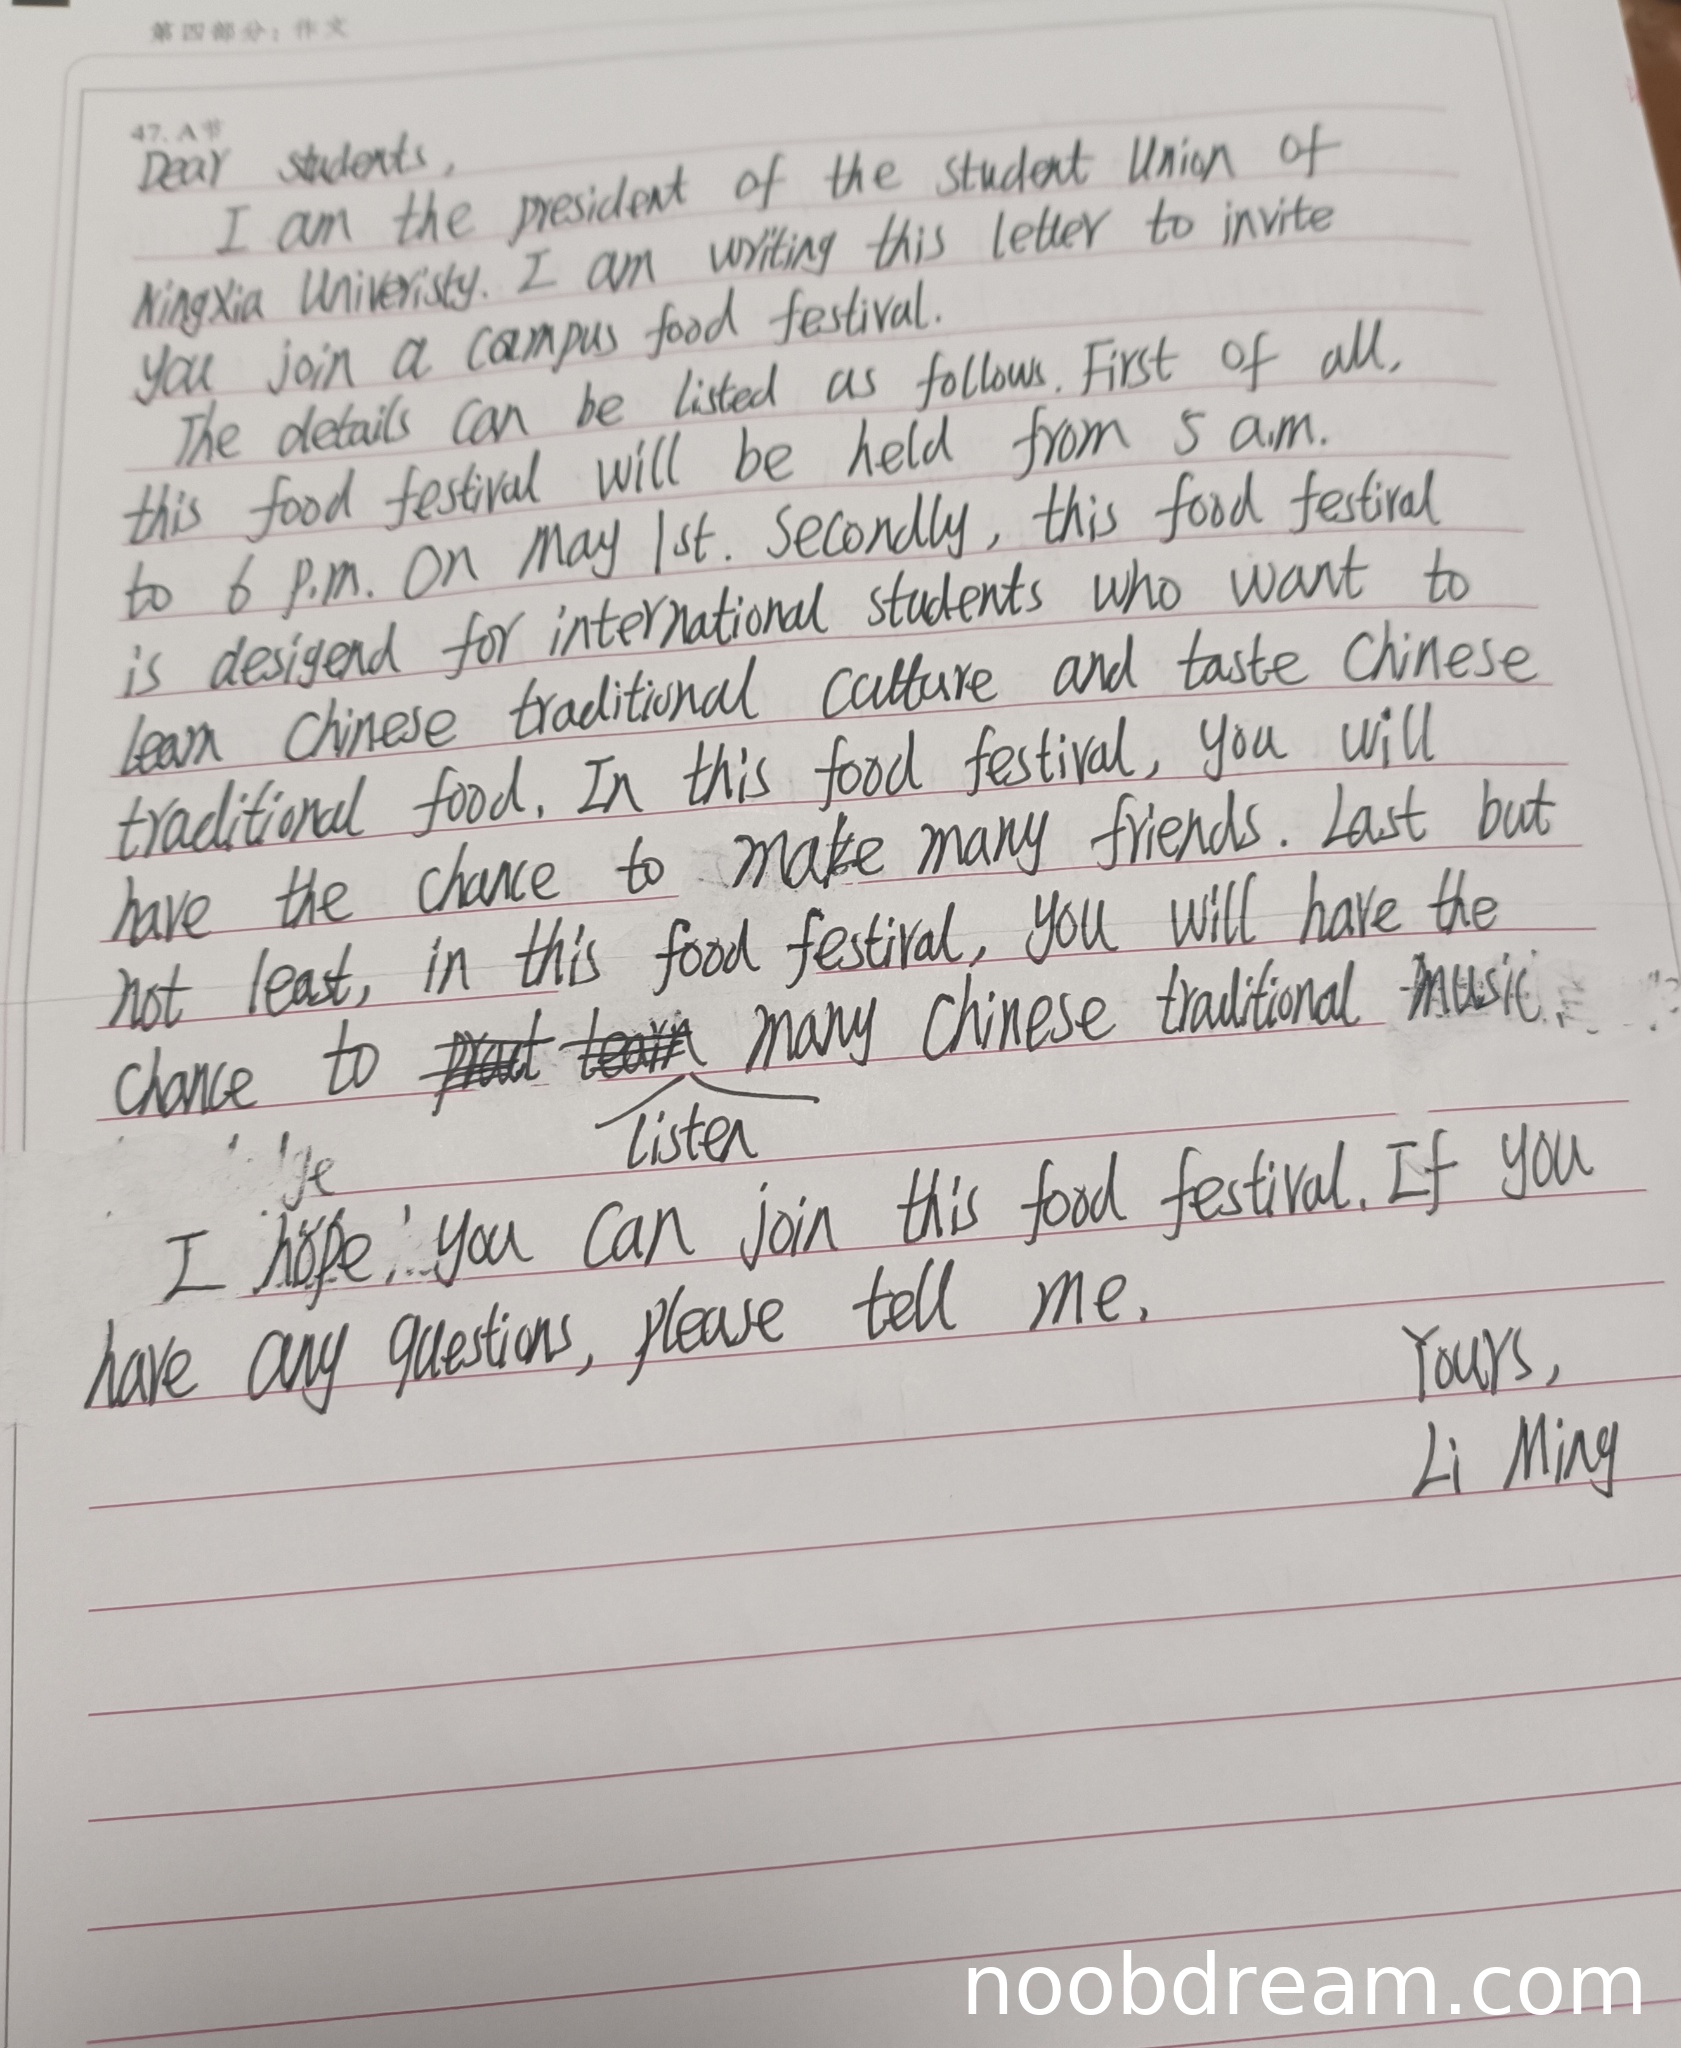 第四部分：作文
47. A节
Dear students,
I am the president of the student Union of
NingXia Univeristy. I am writing this letter to invite
you join a campus food festival.
The details can be listed as follows. First of all,
this food festival will be held from 5 a.m.
to 6 p.m. On May 1st. Secondly, this food festival
is desigend for international students who want to
learn Chinese traditional culture and taste Chinese
traditional food. In this food festival, you will
have the chance to make many friends. Last but
not least, in this food festival, you will have the
chance to many Chinese traditional music.
listen
I hope, you can join this food festival. If you
have any questions, please tell me.
Yours,
Li Ming
noobdream.com